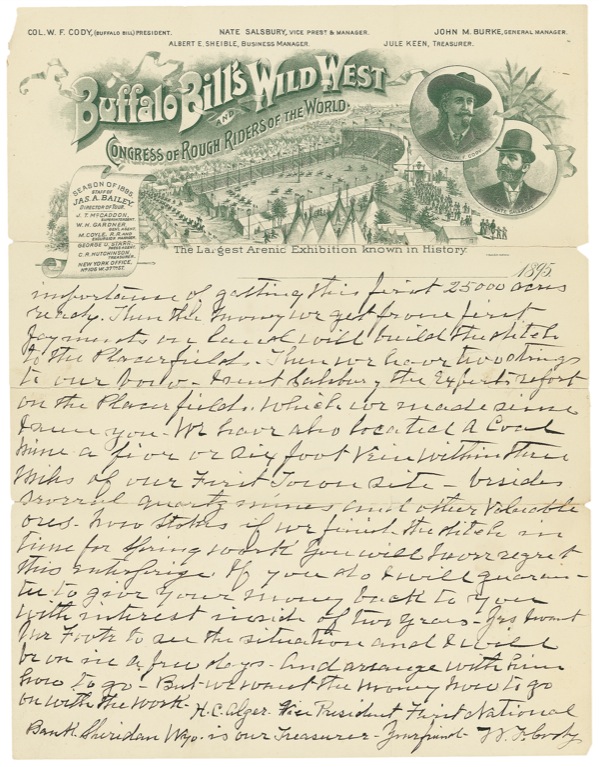 COL. W. F. CODY, (BUFFALO BILL) PRESIDENT. NATE SALSBURY, VICE PREST & MANAGER. JOHN M. BURKE, GENERAL MANAGER.
ALBERT E. SHEIBLE, BUSINESS MANAGER. JULE KEEN, TREASURER.
Buffalo Bill's Wild West
AND
CONGRESS OF ROUGH RIDERS OF THE WORLD.
SEASON OF 1895.
STAFF OF
JAS. A. BAILEY,
DIRECTOR OF TOUR.
J. T. McCADDON,
SUPERINTENDENT.
W. H. GARDNER,
GENL. AGENT.
M. COYLE, R. R. AND
EXCURSION MANAGER.
GEORGE O. STARR,
PRESS AGENT.
C. R. HUTCHINSON,
TREASURER.
NEW YORK OFFICE,
No 106 W. 37TH ST.
The Largest Arenic Exhibition known in History.
1895.
importance of getting this first 25000 acres
ready. Then the money we get from first
payments on land will build the ditch
to the Placerfields. Then we have two strings
to our bow - I sent Salsbury the Experts report
on the Placerfields. which we made since
I seen you - We have also located A Coal
mine a five or six foot Vein within three
miles of our First Town site - besides
several quartz mines and other valuable
ores. Now Stokes if we finish the ditch in
time for Spring work You will never regret
this enterprize. If you do I will guaran-
tee to give your money back to you
with interest inside of two years - Yes I want
Mr Foote to see the situation and I will
be on in a few days - And arrange with him
how to go - But we want the money now to go
on with the work - H. C. Alger. Vice President First National
Bank. Sheridan Wyo. is our Treasurer - Your friend - W. F. Cody